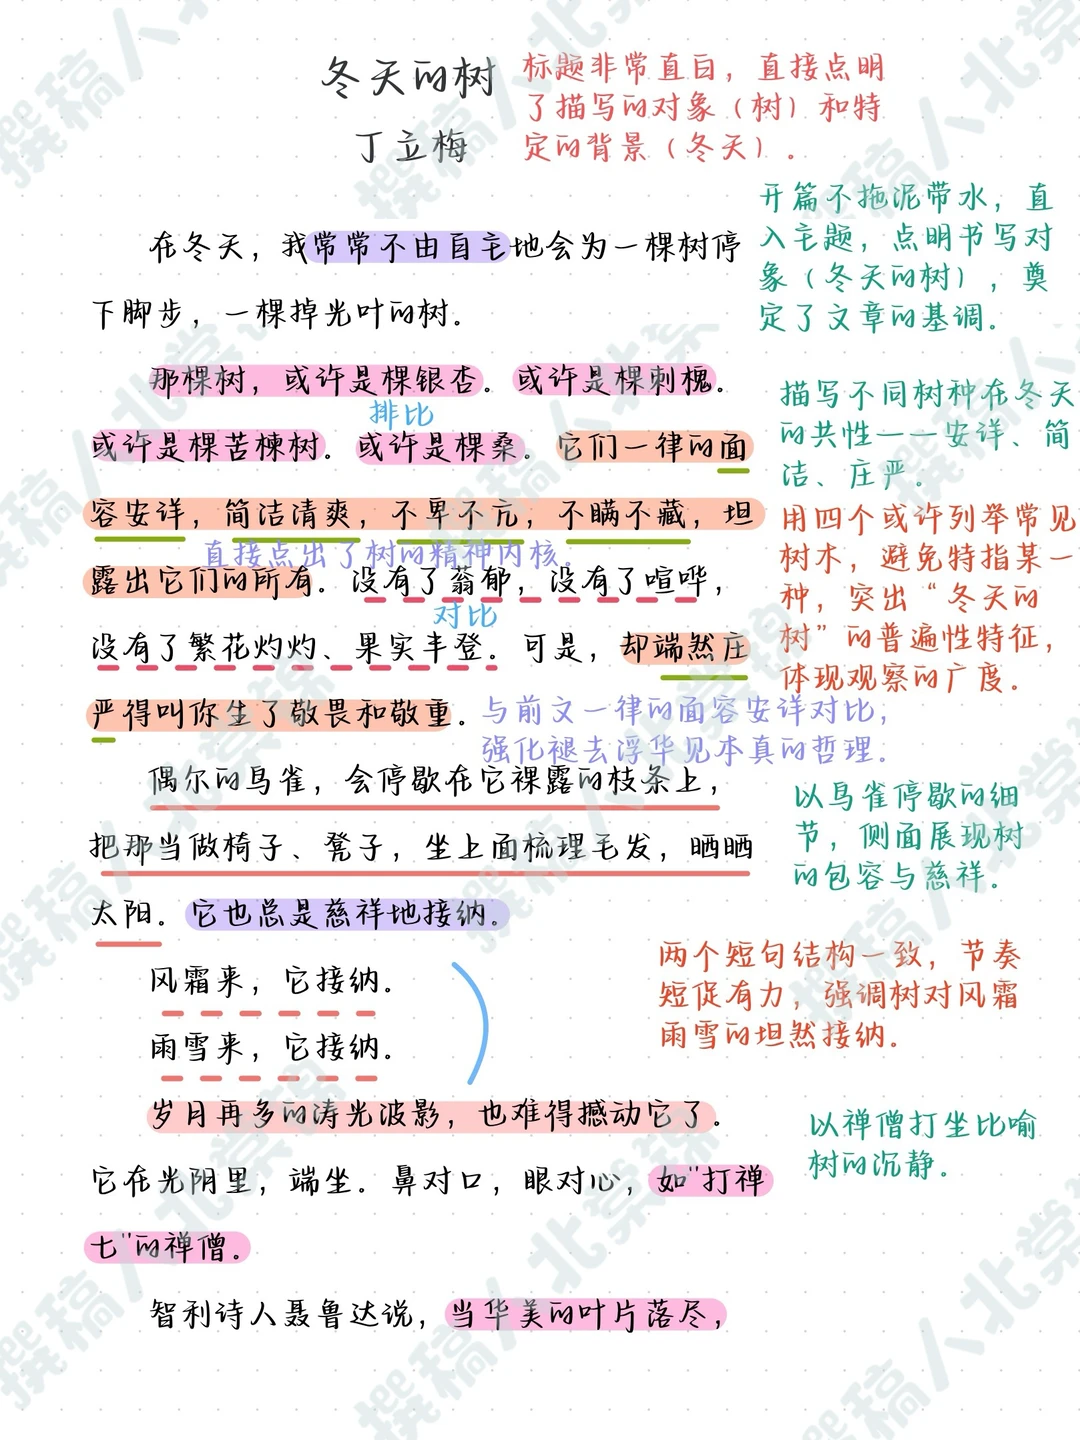 冬天的树
标题非常直白，直接点明
了描写的对象（树）和特
定的背景（冬天）.
丁立梅
开篇不拖泥带水，直
入主题，点明书写对
象（冬天的树），奠
定了文章的基调.
在冬天，我常常不由自主地会为一棵树停
下脚步，一棵掉光叶的树.
那棵树，或许是棵银杏.或许是棵刺槐.
排比
或许是棵苦楝树.或许是棵桑.它们一律的面
容安详，简洁清爽，不卑不亢，不瞒不藏，坦
直接点出了树的精神内核.
露出它们的所有.没有了蓊郁，没有了喧哗，
对比
没有了繁花灼灼、果实丰登.可是，却端然庄
严得叫你生了敬畏和敬重.
描写不同树种在冬天
的共性——安详、简
洁、庄严.
用四个或许列举常见
树木，避免特指某一
种，突出“冬天的
树”的普遍性特征，
体现观察的广度.
与前文一律的面容安详对比，
强化褪去浮华见本真的哲理.
偶尔的鸟雀，会停歇在它裸露的枝条上，
把那当做椅子、凳子，坐上面梳理毛发，晒晒
太阳.它也总是慈祥地接纳.
以鸟雀停歇的细
节，侧面展现树
的包容与慈祥.
风霜来，它接纳.
雨雪来，它接纳.
两个短句结构一致，节奏
短促有力，强调树对风霜
雨雪的坦然接纳.
岁月再多的涛光波影，也难得撼动它了.
它在光阴里，端坐.鼻对口，眼对心，如"打禅
七"的禅僧.
以禅僧打坐比喻
树的沉静.
智利诗人聂鲁达说，当华美的叶片落尽，
撰稿人北棠锦